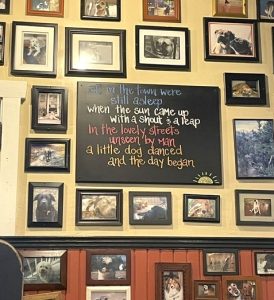 in the town were
still asleep
when the sun came up
with a shout & a leap
In the lovely streets
unseen by man
a little dog danced
and the day began